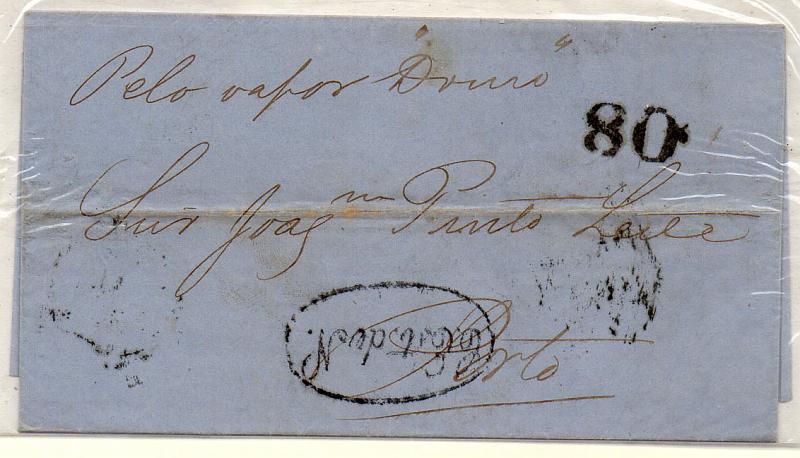 Pelo vapor "Douro"
80
Snr Joaqm Pinto Leite
Porto